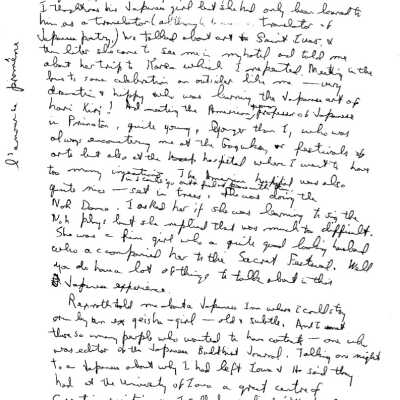 this Japanese girl but she had only been loaned to
him as a translator (although a translator of
Japanese poetry) We talked about art & Saint Ives, &
then later she came to see me in my hotel and told me
about her trip to Korea which I repeated. Meeting in the
bus to some celebration an outsider like me — very
dramatic & happy who was learning the Japanese art of
hara kiri! And meeting the American professor of Japanese
in Princeton, quite young, younger than I, who was
always encountering me at the or festivals &
arts but also at the hospital where I went to have
too many The American hospital was also
quite nice — sat in trees. She was doing the
Noh Dance. I asked her if she was learning to sing the
Noh plays but she replied that was much too difficult.
She was a fine girl who a quite good looking husband
who accompanied her to the Secret Festival. Well
you do have a lot of things to talk about in this
Japanese experience.
Rexroth told me about a Japanese Inn where I could stay
run by an ex geisha-girl — old & subtle. And I met
there so many people who wanted to have contact — one who
was editor of the Japanese Buddhist Journal. Talking one night
to a Japanese about why I had left Iowa & He said they
had at the University of Iowa a great centre of
l'amour promène